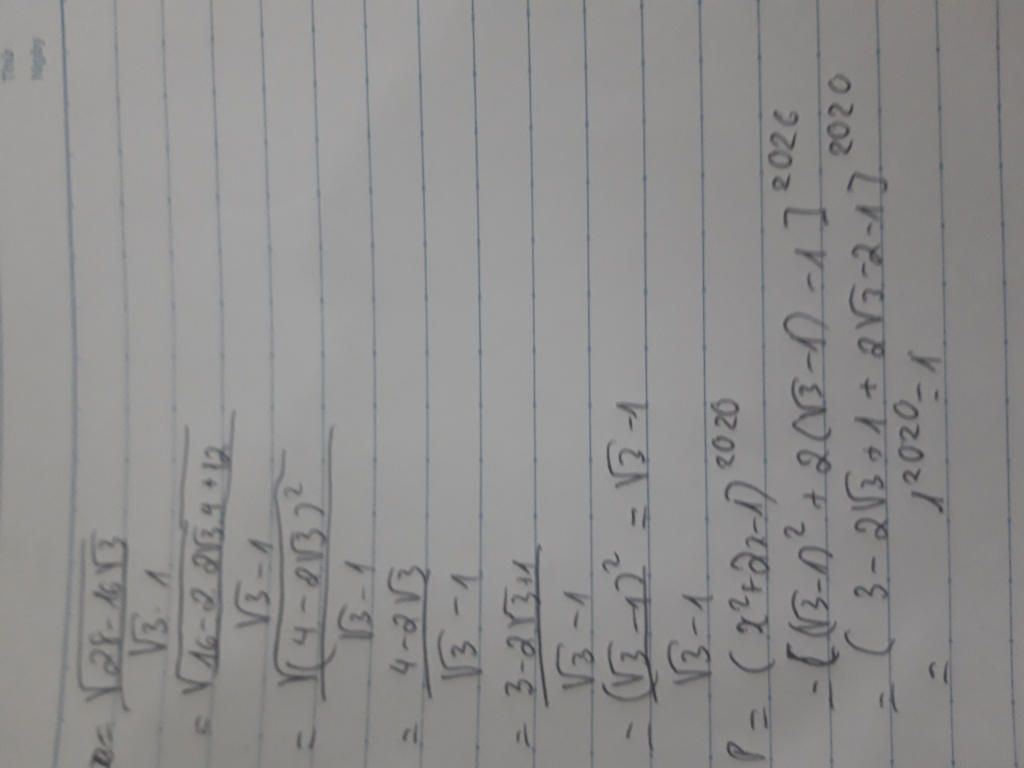 Thứ
Ngày
x = √(28-16√3) / (√3-1)
= √(16-2.2√3.4+12) / (√3-1)
= √((4-2√3)²) / (√3-1)
= (4-2√3) / (√3-1)
= (3-2√3+1) / (√3-1)
= (√3-1)² / (√3-1) = √3-1
P = (x²+2x-1)²⁰²⁰
= [(√3-1)²+2(√3-1)-1]²⁰²⁰
= (3-2√3+1+2√3-2-1]²⁰²⁰
= 1²⁰²⁰ = 1